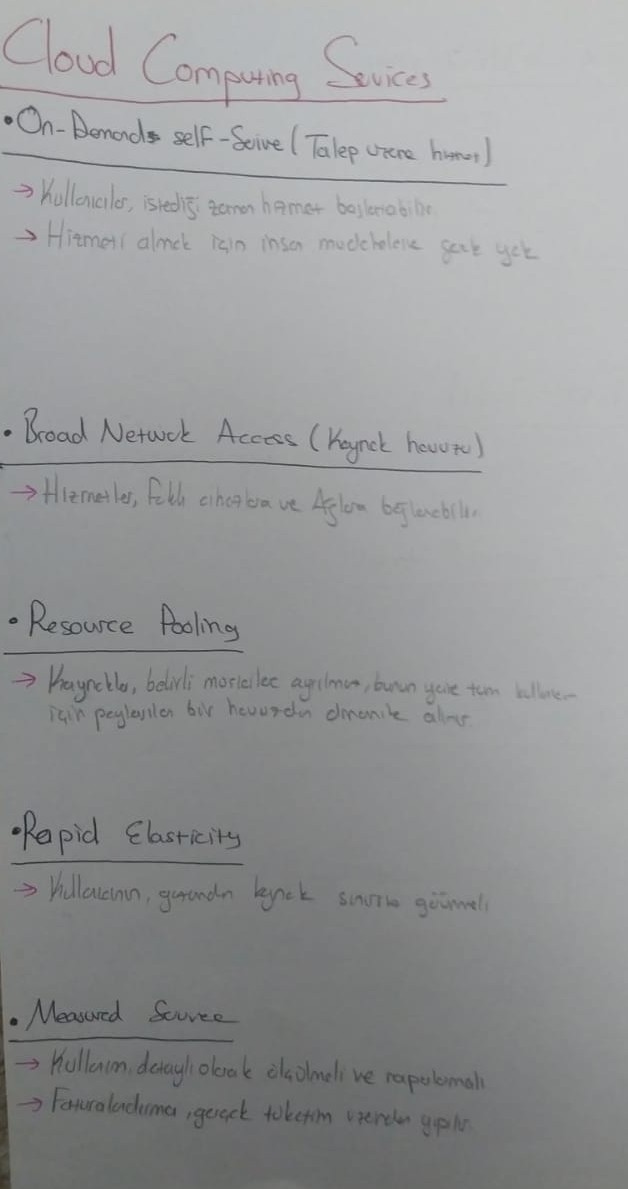 Cloud Computing Sevices
• On-Demands self-Seive (Talep üzere hizmet)
→ Kullanıcılar, istediği zaman hizmet başlatabilir.
→ Hizmeti almak için insan müdahelene gerek yok
• Broad Netwok Access (Kaynak havuzu)
→ Hizmetler, farklı cihazlara ve Ağlara bağlanabilir.
• Resource Pooling
→ Kaynaklar, belirli ayrılmaz, bunun yerine tüm
için paylaşılan bir havuzdan dinamik alınır.
• Rapid Elasticity
→ Kullanıcının, kaynak sınırsız görünmeli
• Measured Servıce
→ Kullanım, detaylı olarak ölçülmeli ve raporlanmalı
→ Faturalandırma, gerçek tüketim üzerinden yapılır.